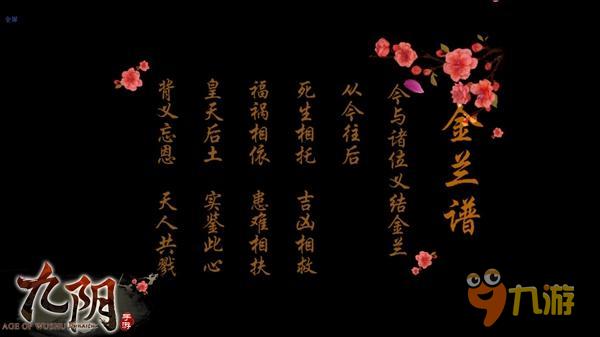 全屏
金兰谱
今与诸位义结金兰
从今往后
死生相托 吉凶相救
福祸相依 患难相扶
皇天后土 实鉴此心
背义忘恩 天人共戮
九阴
手游
AGE OF WUSHU DYNASTY
九游